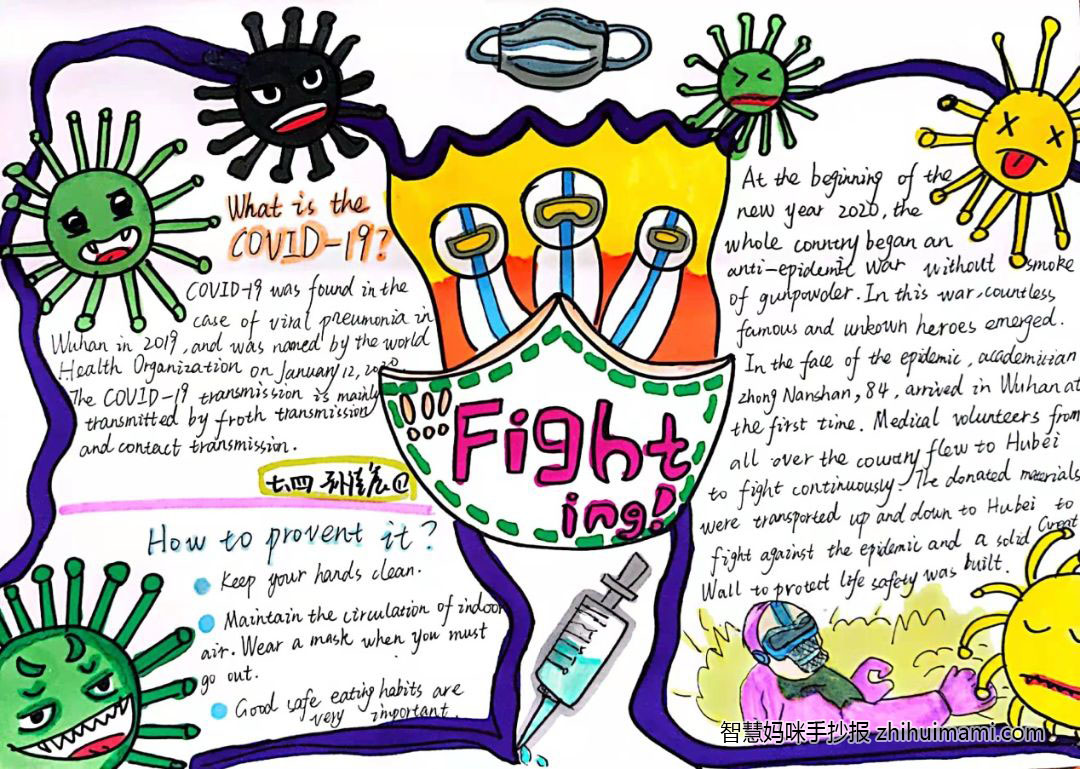 What is the
COVID-19?
COVID-19 was found in the
case of viral pneumonia in
Wuhan in 2019, and was named by the world
Health Organization on January 12, 2020
The COVID-19 transmission is mainly
transmitted by froth transmission
and contact transmission.
七四
How to provent it?
Keep your hands clean.
Maintain the circulation of indoor
air. Wear a mask when you must
go out.
Good safe eating habits are
very important.
!!! Fight
ing!
At the beginning of the
new year 2020, the
whole conntry began an
anti-epidemic war without smoke
of gunpowder. In this war, countless
famous and unkown heroes emerged.
In the face of the epidemic, academician
zhong Nanshan, 84, arrived in Wuhan at
the first time. Medical volunteers from
all over the country flew to Hubei
to fight continuously. The donated materials
were transported up and down to Hubei to
fight against the epidemic and a solid Great
Wall to protect life safety was built.
智慧妈咪手抄报 zhihuimami.com